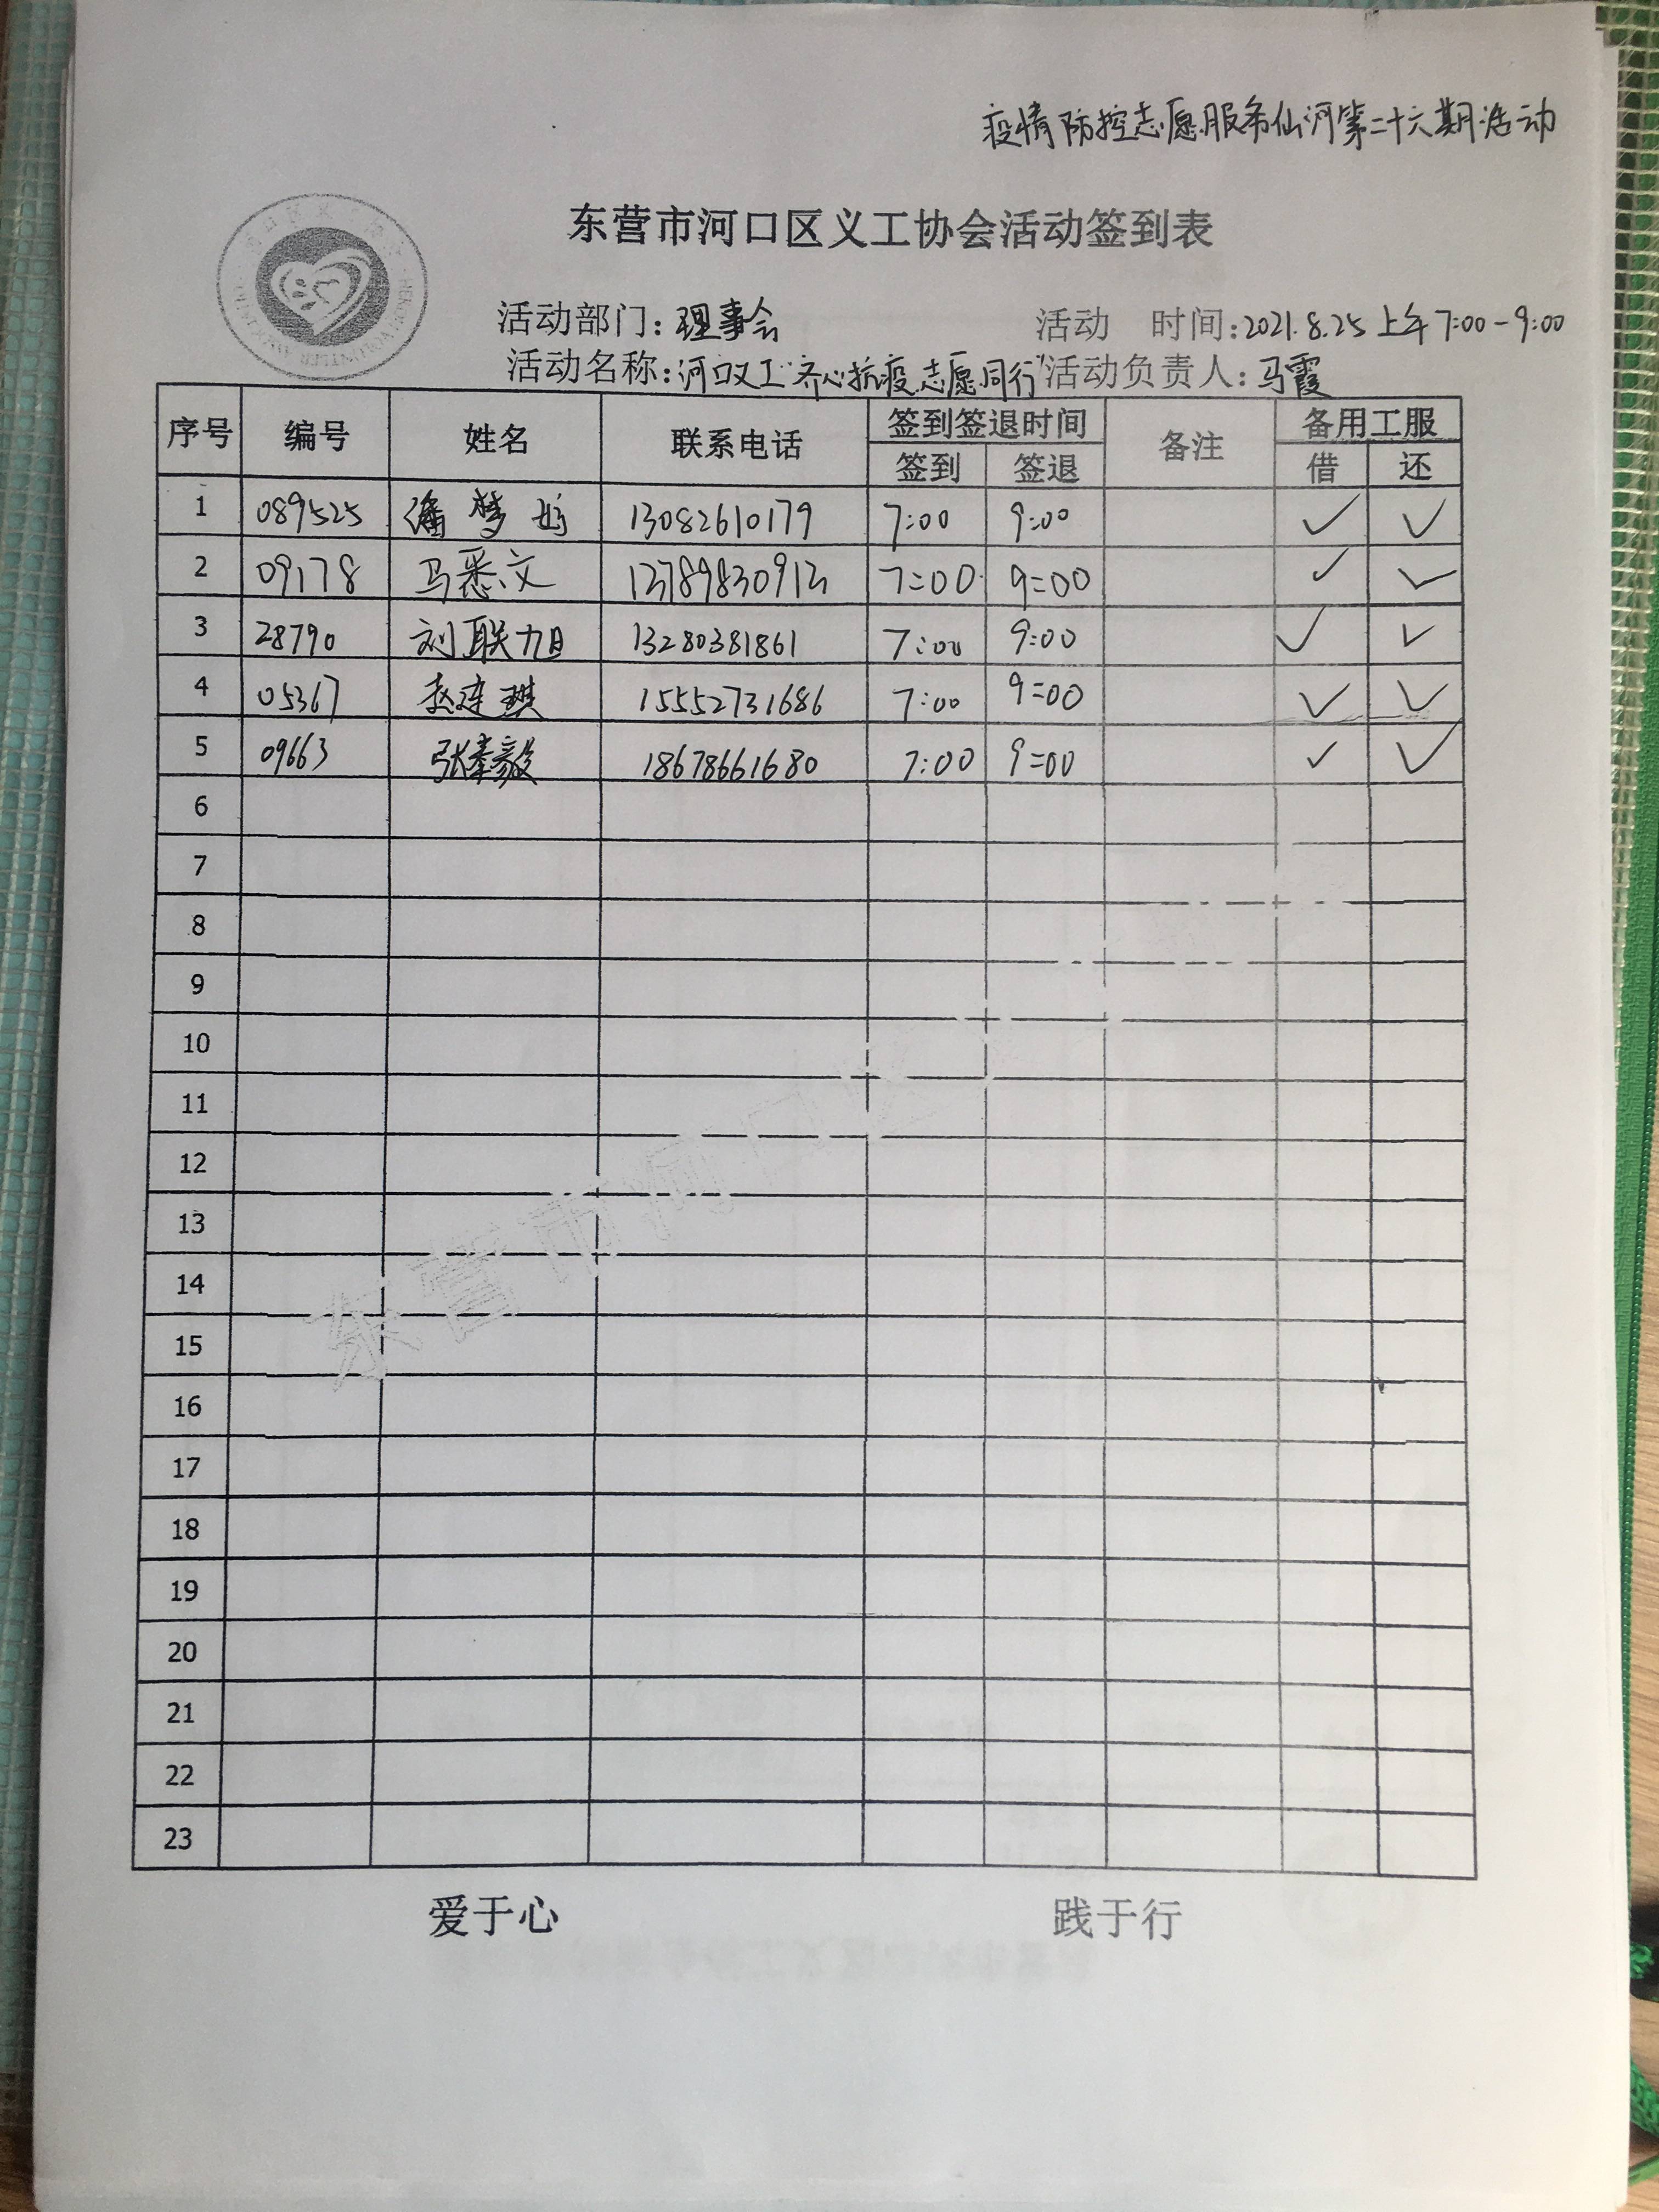 疫情防控志愿服务仙河第二十六期活动
东营市河口区义工协会活动签到表
活动部门:理事会 活动 时间:2021.8.25上午7:00-9:00
活动名称:河口义工"齐心抗疫志愿同行"活动负责人:马霞
序号 编号 姓名 联系电话 签到签退时间 备注 备用工服
签到 签退 借 还
1 089525 潘梦 13082610179 7:00 9:00 ✓ ✓
2 09178 马悉文 13789830913 7:00 9:00 ✓ ✓
3 28790 刘联旭 13280381861 7:00 9:00 ✓ ✓
4 05367 赵连琪 15552731686 7:00 9:00 ✓ ✓
5 09663 张毅 18678661680 7:00 9:00 ✓ ✓
6
7
8
9
10
11
12
13
14
15
16
17
18
19
20
21
22
23
东营市河口
爱于心 践于行